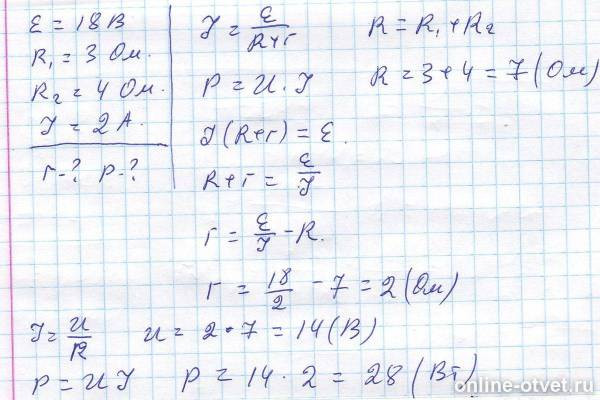 ε = 18 В
R₁ = 3 Ом.
R₂ = 4 Ом.
J = 2 А.
r - ? P - ?
J = ε/(R+r)
P = U · J
J(R+r) = ε.
R + r = ε/J
r = ε/J - R.
r = 18/2 - 7 = 2 (Ом)
R = R₁ + R₂
R = 3 + 4 = 7 (Ом)
J = U/R U = 2 · 7 = 14 (В)
P = UJ P = 14 · 2 = 28 (Вт)
online-otvet.ru